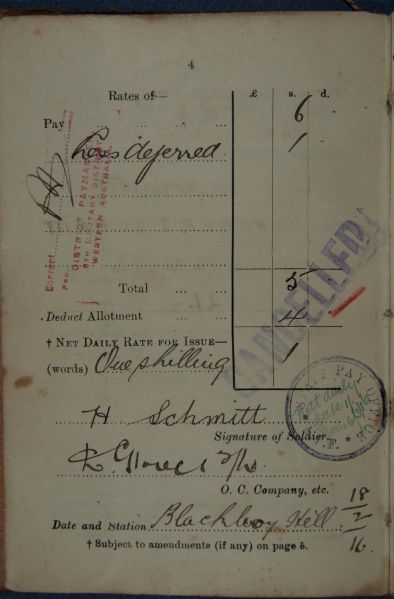 4
Rates of— £ s. d.
Pay ... ... ... 6
Less deferred 1
Correct
DISTRICT PAYMASTER
5TH MILITARY DISTRICT
WESTERN AUSTRALIA
Total ... ... 5
Deduct Allotment ... ... 4
† NET DAILY RATE FOR ISSUE— 1
(words) One shilling
CANCELLED
H Schmitt
Signature of Soldier.
PAY OFFICE
O. C. Company, etc.
Date and Station Blackboy Hill 18/2/16.
† Subject to amendments (if any) on page 5.